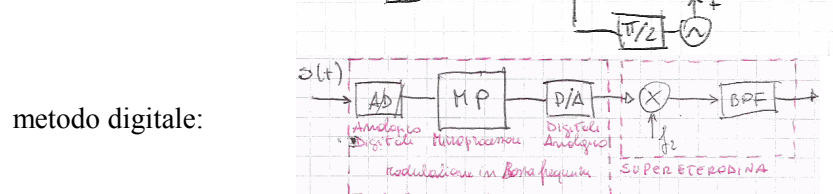 +
π/2 ~
s(t)
A/D MP D/A × BPF
metodo digitale:
Analogico Digitale Microprocessore Digitale Analogico f₂
modulazione in Bassa frequenza SUPERETERODINA